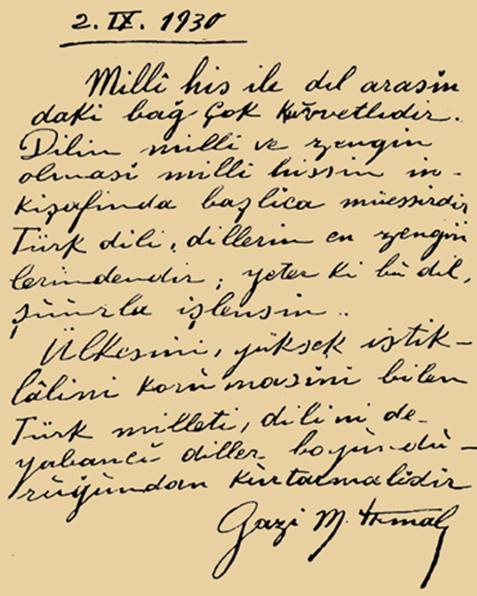 2. IX. 1930
Millî his ile dil arasın
daki bağ çok kuvvetlidir.
Dilin milli ve zengin
olması milli hissin in-
kişafında başlıca müessirdir
Türk dili, dillerin en zengin
lerindendir; yeter ki bu dil,
şuurla işlensin..
Ülkesini, yüksek istik-
lâlini korumasını bilen
Türk milleti, dilini de
yabancı diller boyundu-
ruğundan kurtarmalıdır
Gazi M. Kemal